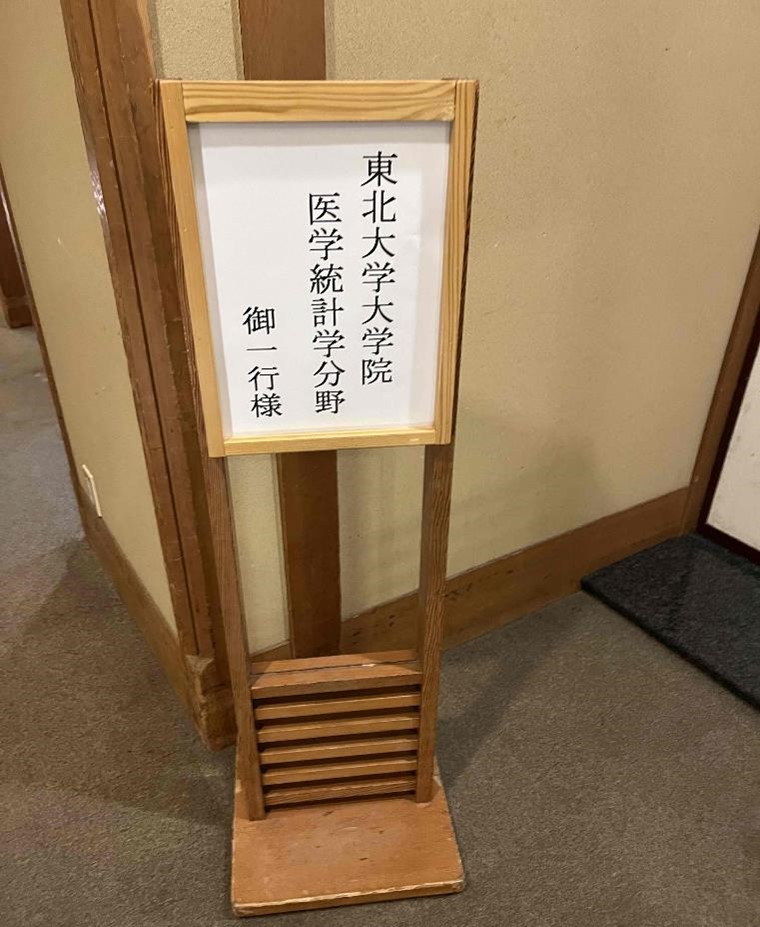 東北大学大学院
医学統計学分野
御一行様